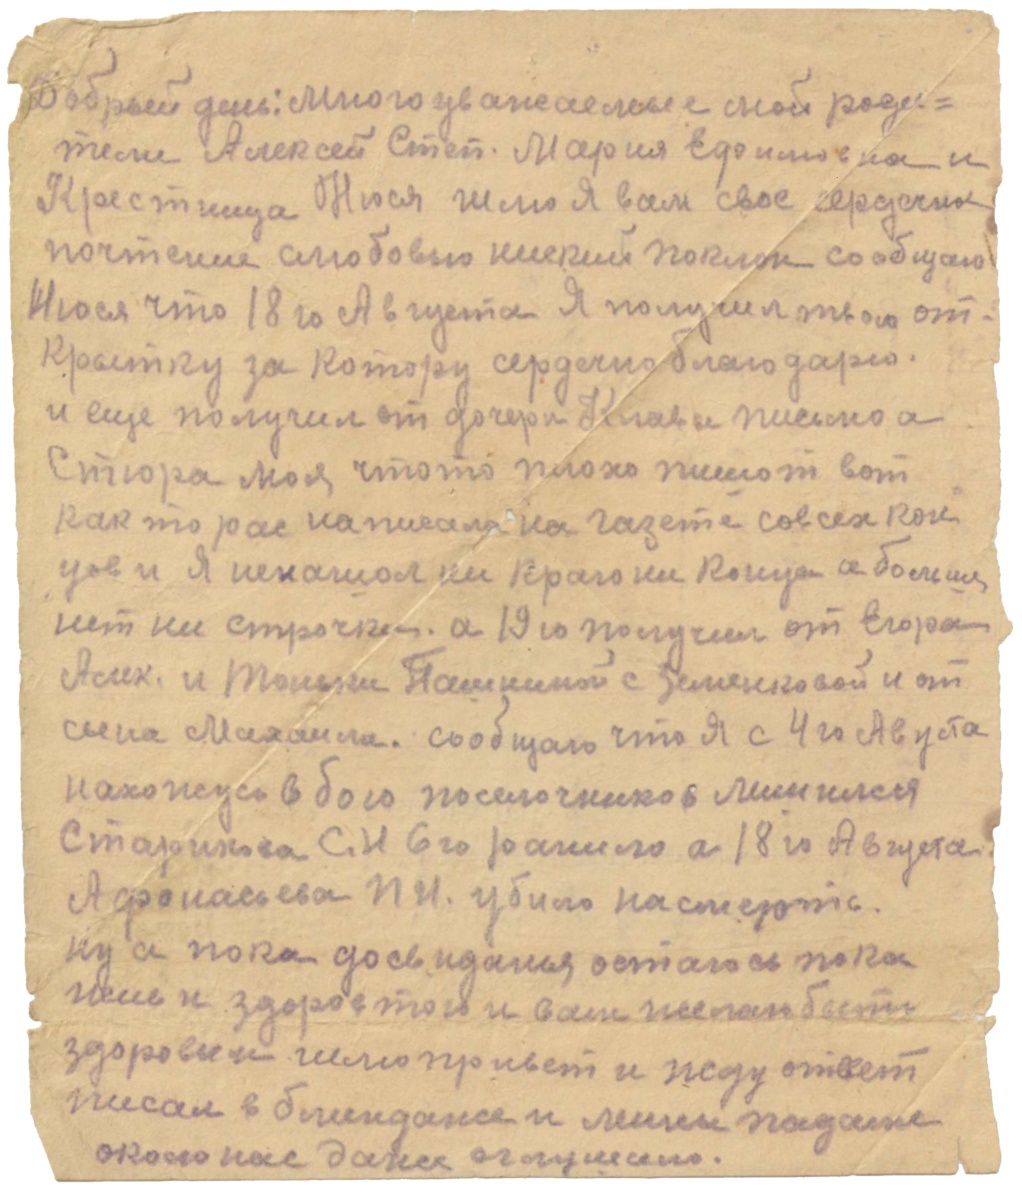 Добрый день! Многоуважаемые мой роди=
тели Алексей Степ. Мария Ефимовна и
Крестница Нюся шлю Я вам свое сердечное
почтение слюбовью ниский поклон сообщаю
Нюся что 18го Августа Я получил твою от-
крытку за котору сердечно благодарю.
и еще получил от дочери Клавы письмо а
Стюра моя чтото плохо пишот вот
как то рас написала на газете совсех кон
цов и Я ненашол ни краю ни конца а больше
нет ни строчки. а 19го получил от Егора
Алек. и Тоньки Пашниной с Зименковой и от
сына Михаила. сообщаю что Я с 4го Августа
нахожусь в бою поселочников лишился
Старикова С.И 6го ранило а 18го Августа
Афонасьева П И. убило насмерть.
ну а пока досвиданья остаюсь пока
жив и здоров того и вам желаю быть
здоровым шлю привет и жду ответ
писал в блиндаже и мины падали
около нас даже оглушило.